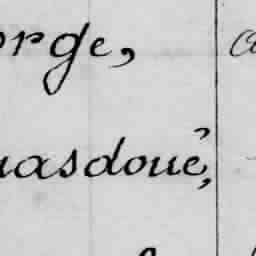 orge,
uasdoué,